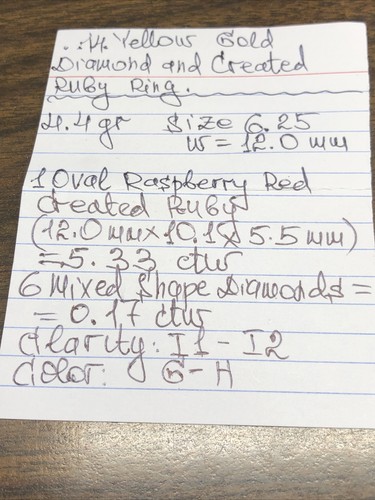 Yellow Gold
Diamond and Created
Ruby Ring.
4.4 gr Size 6.25
W = 12.0 mm
1 Oval Raspberry Red
Created Ruby
(12.0 mm x 10.1 x 5.5 mm)
= 5.33 ctw
6 Mixed Shape Diamonds =
= 0.17 ctw
Clarity: I1 - I2
Color: G - H